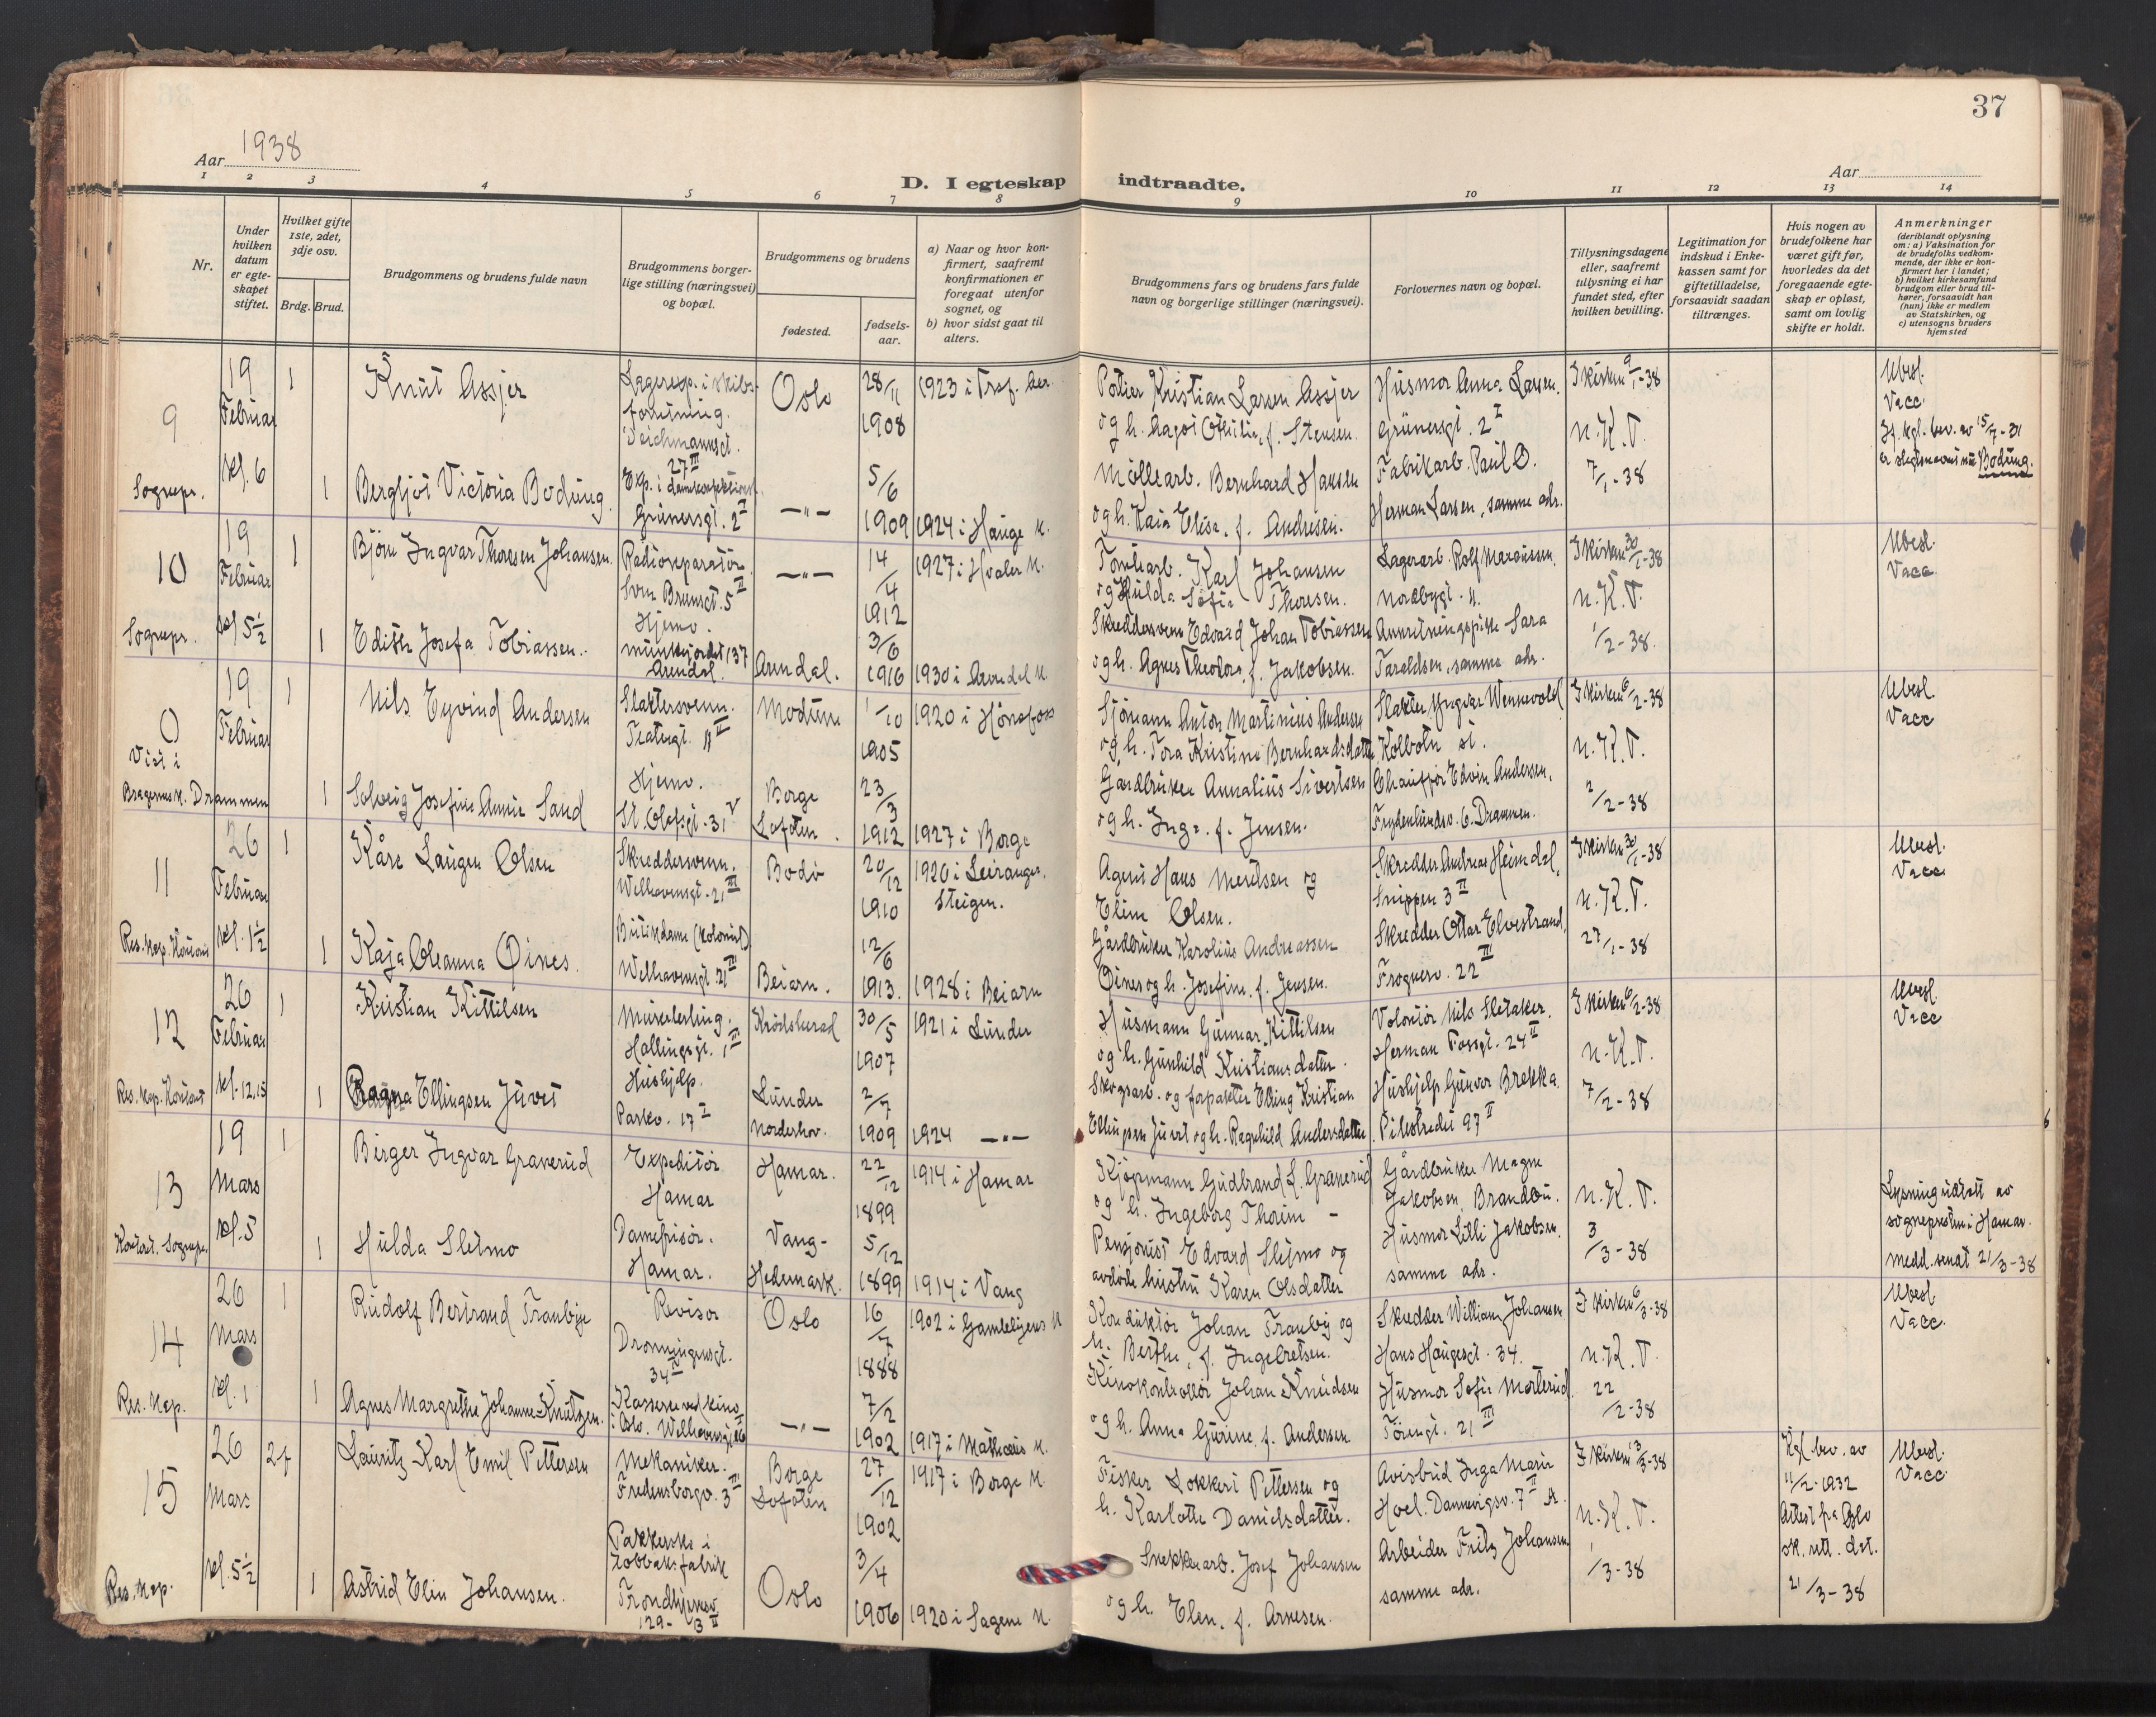 37
Aar 1938
Aar
D. I egteskap indtraadte.
1 2 3 4 5 6 7 8 9 10 11 12 13 14
Nr.
Under hvilken datum er egteskapet stiftet.
Hvilket gifte 1ste, 2det, 3dje osv.
Brdg. Brud.
Brudgommens og brudens fulde navn
Brudgommens borgerlige stilling (næringsvei) og bopæl.
Brudgommens og brudens
fødested.
fødselsaar.
a) Naar og hvor konfirmert, saafremt konfirmationen er foregaat utenfor sognet, og
b) hvor sidst gaat til alters.
Brudgommens fars og brudens fars fulde navn og borgerlige stillinger (næringsvei).
Forlovernes navn og bopæl.
Tillysningsdagene eller, saafremt tillysning ei har fundet sted, efter hvilken bevilling.
Legitimation for indskud i Enkekassen samt for giftetilladelse, forsaavidt saadan tiltrænges.
Hvis nogen av brudefolkene har været gift før, hvorledes da det foregaaende egteskap er opløst, samt om lovlig skifte er holdt.
Anmerkninger
(deriblandt oplysning om: a) Vaksination for de brudefolks vedkommende, der ikke er konfirmert her i landet; b) hvilket kirkesamfund brudgom eller brud tilhører, forsaavidt han (hun) ikke er medlem av Statskirken, og c) utensogns bruders hjemsted
9 Sognepr.
19 Februar kl. 6
1 Knut Assjer
Oslo
28/11 1908
Potter Kristian Larsen Assjer
Husmor Anna Larsen.
Grünersgt. 2 I
I kirken 9/1-38
n.K.T.
7/1-38
Ubesl.
Vacc.
1 Bergljot Victoria Boding
Grünersgt. 2 I
—"—
5/6 1909
1924 i Hauge K.
Möllearb. Bernhard Hansen
og h. Kaia Elise, f. Andresen.
Fabrikarb. Paul O.
Herman Larsen, samme adr.
Boding.
10 Sognepr.
19 Februar kl. 5½
1 Björn Ingvar Thoresen Johansen.
Radioreparatör
II
—"—
14/4 1912
1927 i Hvaler K.
Tomtearb. Karl Johansen
og Hulda Sofie Thoresen.
Lagerarb. Rolf Marcussen
Nordbygt. 11.
I kirken 30/1-38
n.K.T.
1/2-38.
Ubesl.
Vacc.
1 Edith Josefa Tobiassen.
Hjemv.
Arendal.
Arendal.
3/6 1916
1930 i Arendal K.
Skreddersvenn Edvard Johan Tobiassen
og h. Agnes Theodora, f. Jakobsen.
Sara
Taraldsen, samme adr.
0
Viet i
Bragernes k. Drammen
19 Februar
1 Nils Eyvind Andersen
Slaktersvenn.
Toftesgt. 11 II
Modum
1/10 1905
1920 i Hönefoss
Sjömann Anton Martinius Andersen
og h. Tora Kristine Bernhardsdatter
Slakter Yngvar Wennevold
Kolbotn st.
I kirken 6/2-38
n.K.T.
2/2-38
Ubesl.
Vacc
1 Solveig Josefine Annie Sand
Hjemv.
St. Olafsgt. 31 V
Borge Lofoten.
23/3 1912
1927 i Borge
Gårdbruker Annalius Sivertsen
og h. Inga. f. Jensen.
Chauffør Edvin Andersen,
Frydenlundsv. 6. Drammen.
11
26 Februar kl. 1½
Res. Kap. Kontoret
1 Kåre Laugen Olsen
Skreddersvenn.
Welhavensgt. 21 III
Bodö
20/12 1910
1926 i Leiranger,
Steigen.
Agent Hans Mentsen og
Eline Olsen.
Skredder Andreas Heimdal,
Snippen 3 II
I kirken 30/1-38
n.K.T.
27/1-38
Ubesl.
Vacc
1 Kaja Oleanna Öines.
Butikdame (Kolonial)
Welhavensgt. 21 III
Beiarn.
12/6 1913.
1928 i Beiarn
Gårdbruker Karolius Andreassen
Öines og h. Josefine, f. Jensen.
Skredder Ottar Elvestrand,
Frognerv. 22 III
12
26 Februar kl. 12,15
Res. Kap. Kontoret
1 Kristian Kittilsen
Murerlerling.
Hallingsgt. 1 III
Krödsherad
30/5 1907
1921 i Lunder
Husmann Gunnar Kittilsen
og h. Gunhild Kristiansdatter.
Volontör Nils Sletaker.
Herman Fossgt. 24 II
I kirken 6/2-38
n.K.T.
7/2-38
Ubesl.
Vacc
1 Ragna Ellingsen Juvet
Hushjelp.
Parkv. 17 I
Lunder
Norderhov.
2/7 1909
1924 —"—
Skogsarb. og forpakter Elling Kristian
Ellingsen Juvet og h. Ragnhild Andersdatter.
Hushjelp Gunvor Brekka.
Pilestredet 97 II
13
19 Mars kl. 5
Kontoret. Sognepr.
1 Birger Ingvar Graverud
Expeditör
Hamar
Hamar.
22/12 1899
1914 i Hamar
Kjöpmann Gudbrand L. Graverud
og h. Ingeborg Thorine -
Gårdbruker Magne
Jakobsen, Brandbu.
n.K.T.
3/3-38
Lysning utstedt av
sognepresten i Hamar.
medd. sendt 21/3-38
1 Hulda Sletmo
Damefrisör.
Hamar.
Vang-
Hedemark.
5/12 1899
1914 i Vang
Pensjonist Edvard Sletmo og
avdöde hustru Karen Olsdatter
Husmor Lilli Jakobsen.
samme adr.
14
26 Mars kl. 1
Res. Kap.
1 Rudolf Bertrand Traubye
Revisor
Dronningensgt.
34 IV
Oslo
16/7 1888
1902 i Gamlebyens K
Konduktör Johan Trauby og
h. Berthe, f. Ingebretsen.
Skredder William Johansen
Hans Haugesgt. 34.
I kirken 6/3-38
n.K.T.
22/2-38
Ubesl.
Vacc.
1 Agnes Margrethe Johanne Knutzen.
Kasserer ved kino
i Oslo. Welhavensgt. 16 II
—"—
7/2 1902
1917 i Mathæus K.
Kinokontrollör Johan Knudsen
og h. Anna Gurine, f. Andersen
Husmor Sofie Morterud
21 III
15
26 Mars kl. 5½
Res. Kap.
2 f Lauritz Karl Emil Pettersen
Mekaniker.
Fredensborgv. 3 III
Borge
Lofoten
27/12 1902
1917 i Borge K.
Fisker Lokkert Pettersen og
h. Karlotte Danielsdatter.
Avisbud Inga Marie
Hoel. Dannevigsv. 7 II A.
I kirken 13/3-38
n.K.T.
1/3-38
Kgl. bev. av
11/2-1932
Attest fra Oslo
sk. rett. dat.
21/3-38
Ubesl.
Vacc.
1 Astrid Elin Johansen.
Pakkerske i
tobbaksfabrik
Trondhjemsv.
129- 3 II
Oslo
3/4 1906
1920 i Sagene K.
Snekkerarb. Josef Johansen
og h. Elen, f. Arnesen.
Arbeider Fritz Johansen
samme adr.